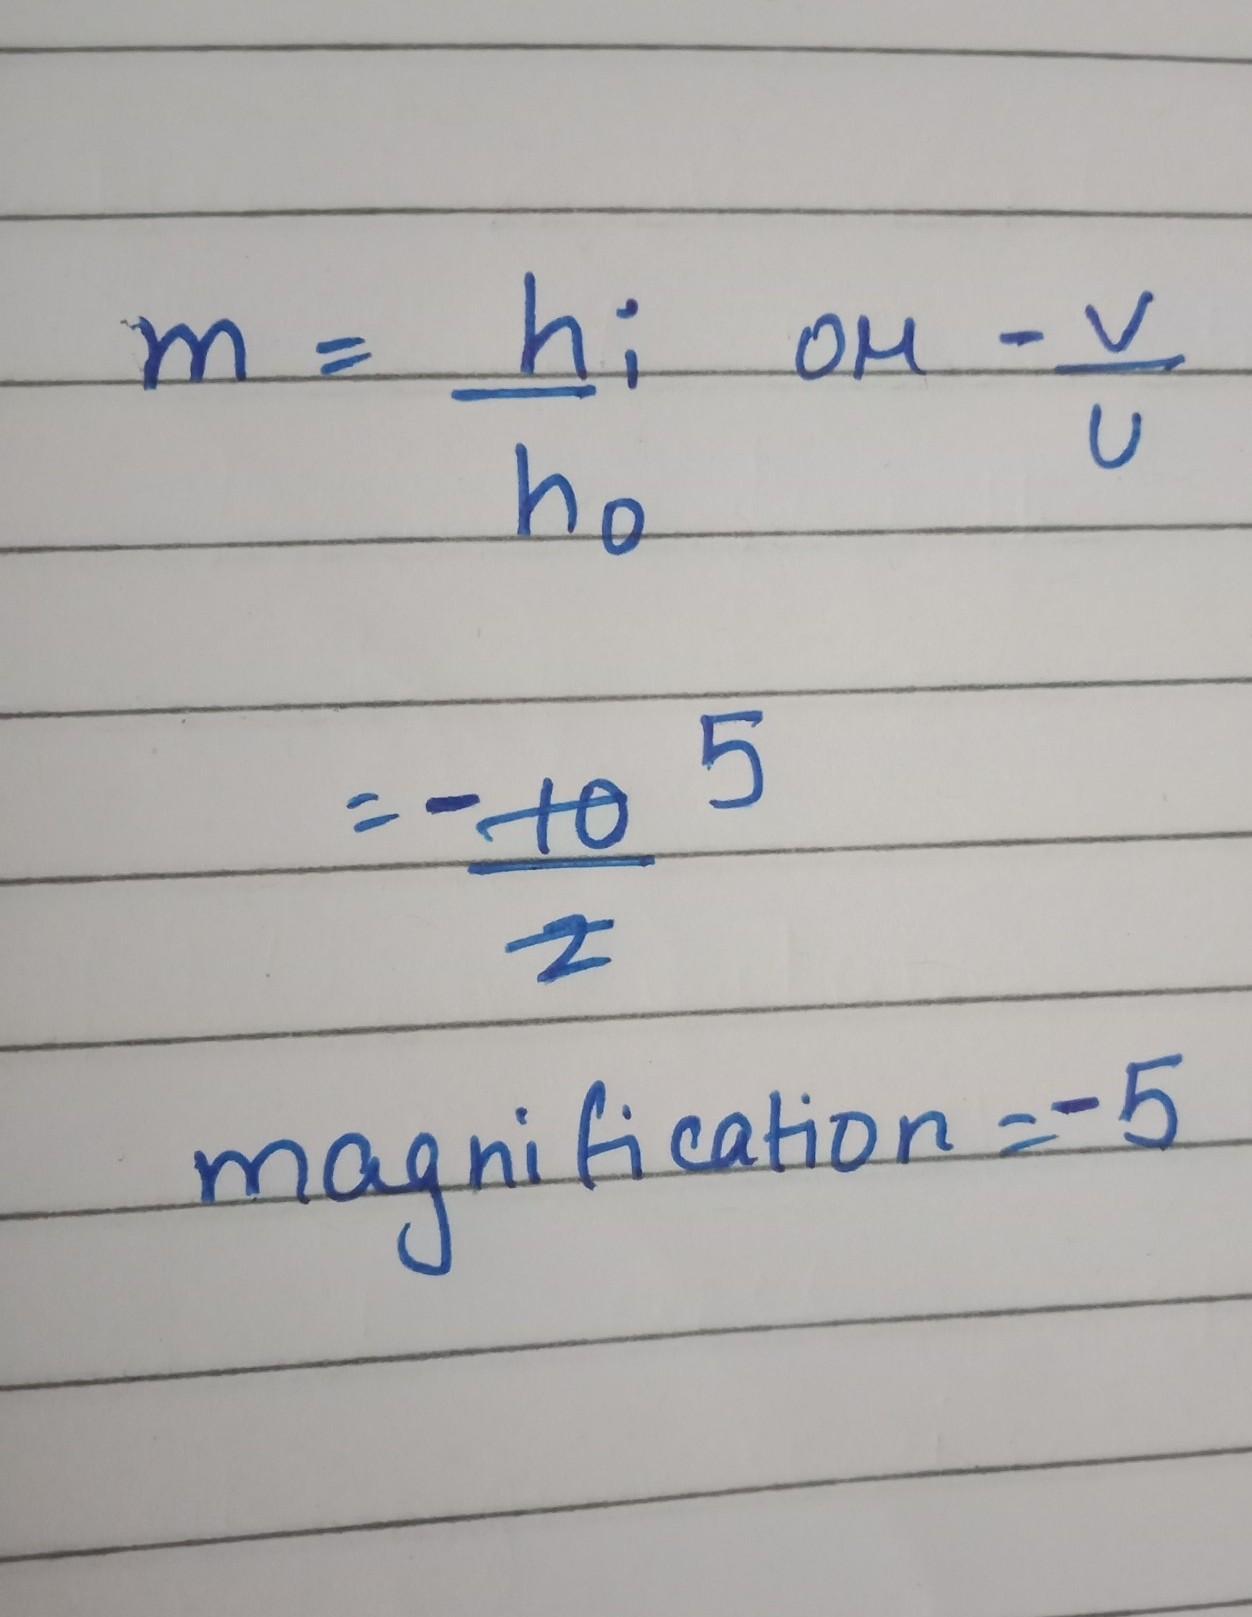 m = hi/ho or - v/u
= - 10/2 5
magnification = - 5